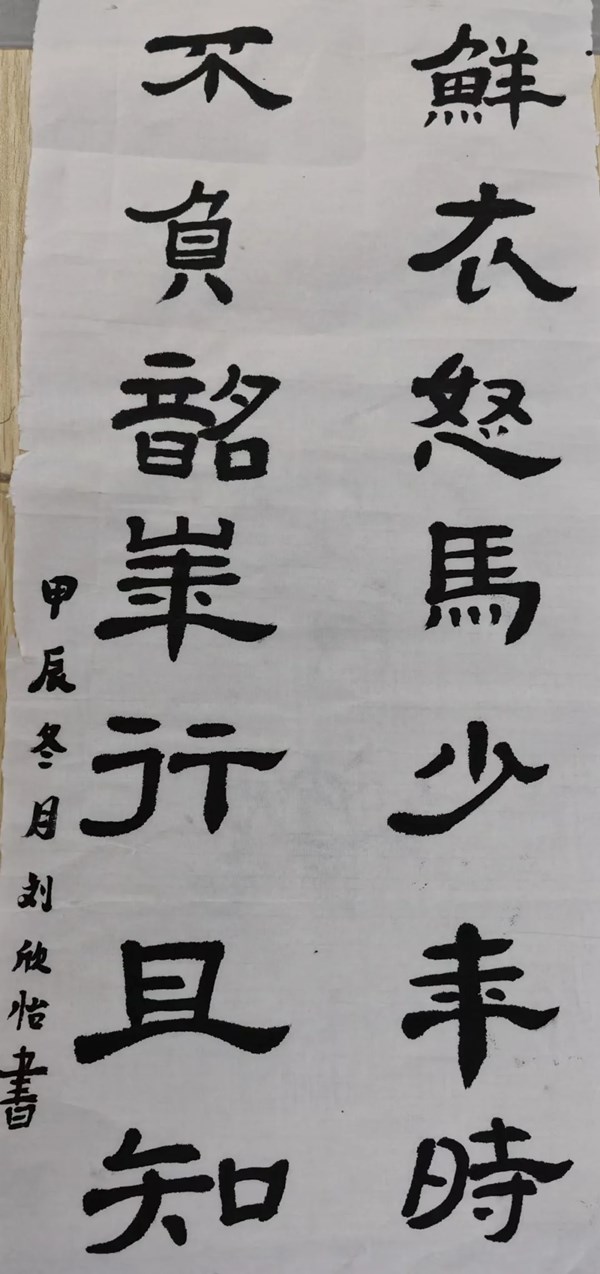 鮮衣怒馬少年時
不負韶華行且知
甲辰冬月刘欣怡書